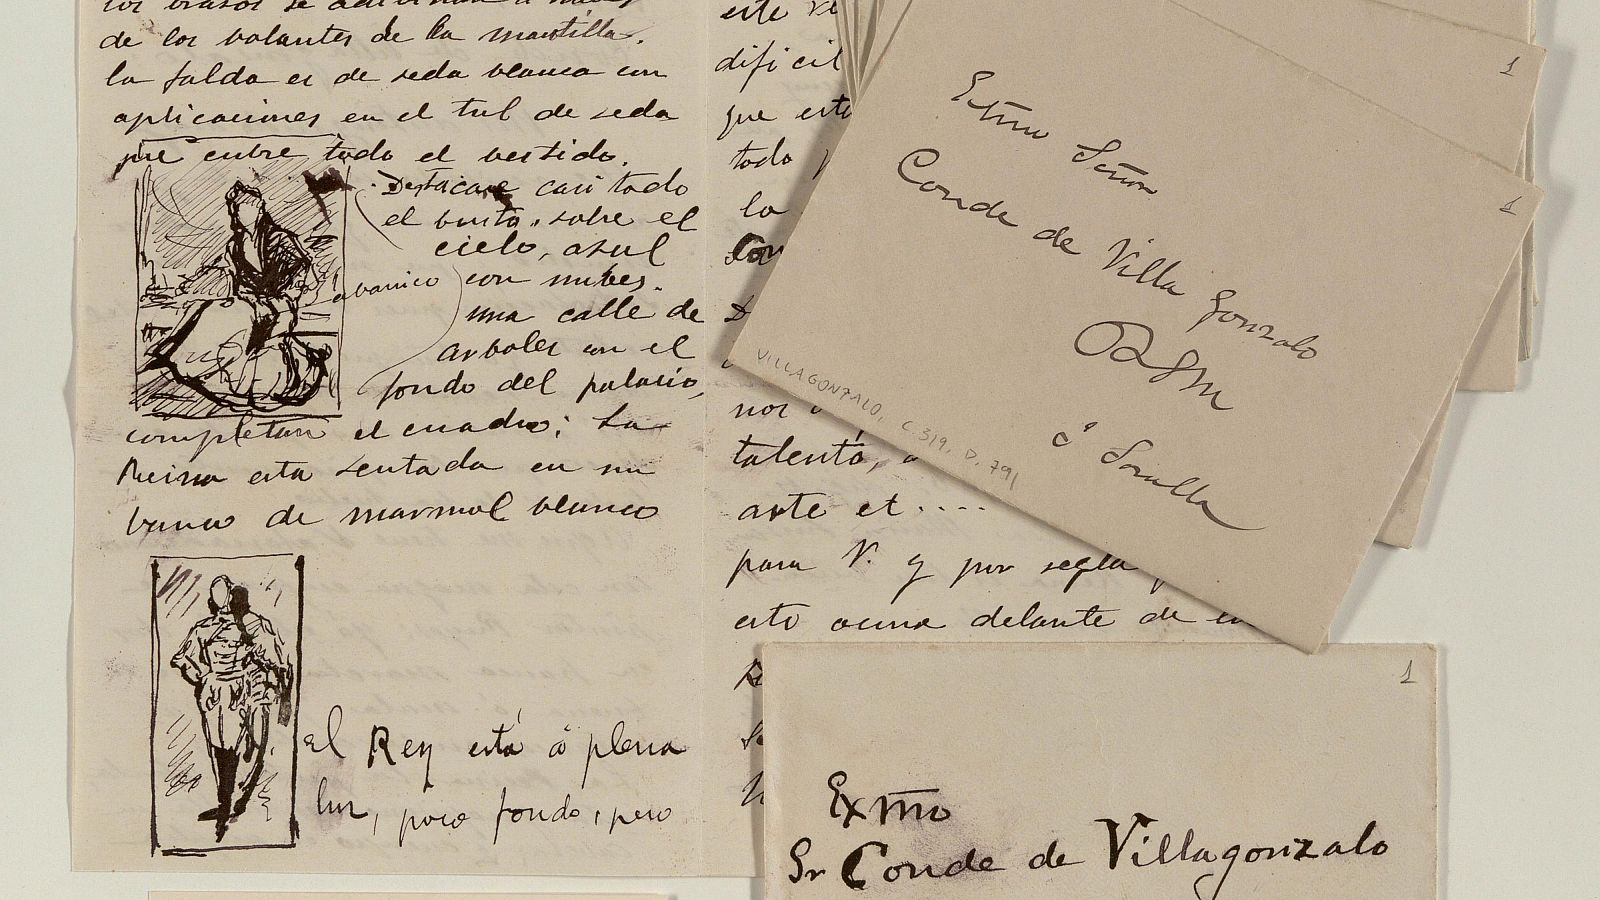 los brazos se adivinan a
de los volantes de la mantilla.
la falda es de seda blanca con
aplicaciones en el tul de seda
que cubre todo el vestido.
Destacase casi todo
el busto, sobre el
cielo, azul
abanico
con nubes.
una calle de
arboles con el
fondo del palacio,
completan el cuadro; La
Reina esta sentada en un
banco de marmol blanco
El Rey está á plena
luz, poco fondo, pero
este
dificil
que esto
todo
lo
Con
nos
talento,
arte et....
para V. y por regla
esto ocurre delante de
1
1
Exmo Señor
Conde de Villa Gonzalo
BSM
VILLAGONZALO, C.319, D.791
J Sorolla
1
Exmo
Sr Conde de Villagonzalo